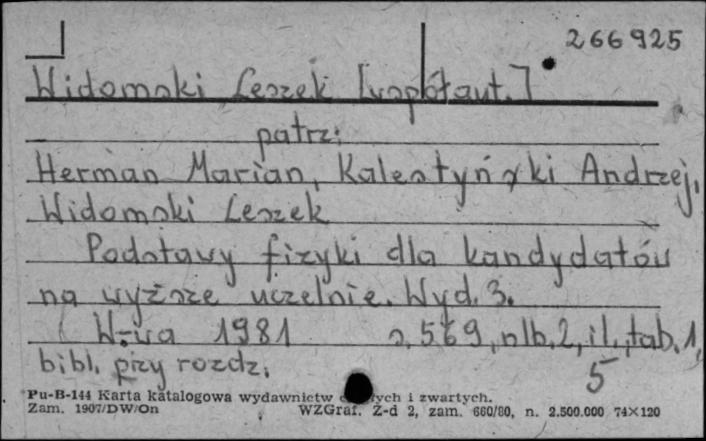 266925
Widomski Leszek [współaut.]
patrz:
Herman Marian, Kalestyński Andrzej,
Widomski Leszek
Podstawy fizyki dla kandydatów
na wyższe uczelnie. Wyd. 3.
W-wa 1981 s. 569, nlb. 2, il., tab. 1,
bibl. przy rozdz. 5
Pu-B-144 Karta katalogowa wydawnictw i zwartych.
Zam. 1907/DW/On WZGraf. Z-d 2, zam. 660/80, n. 2.500.000 74×120